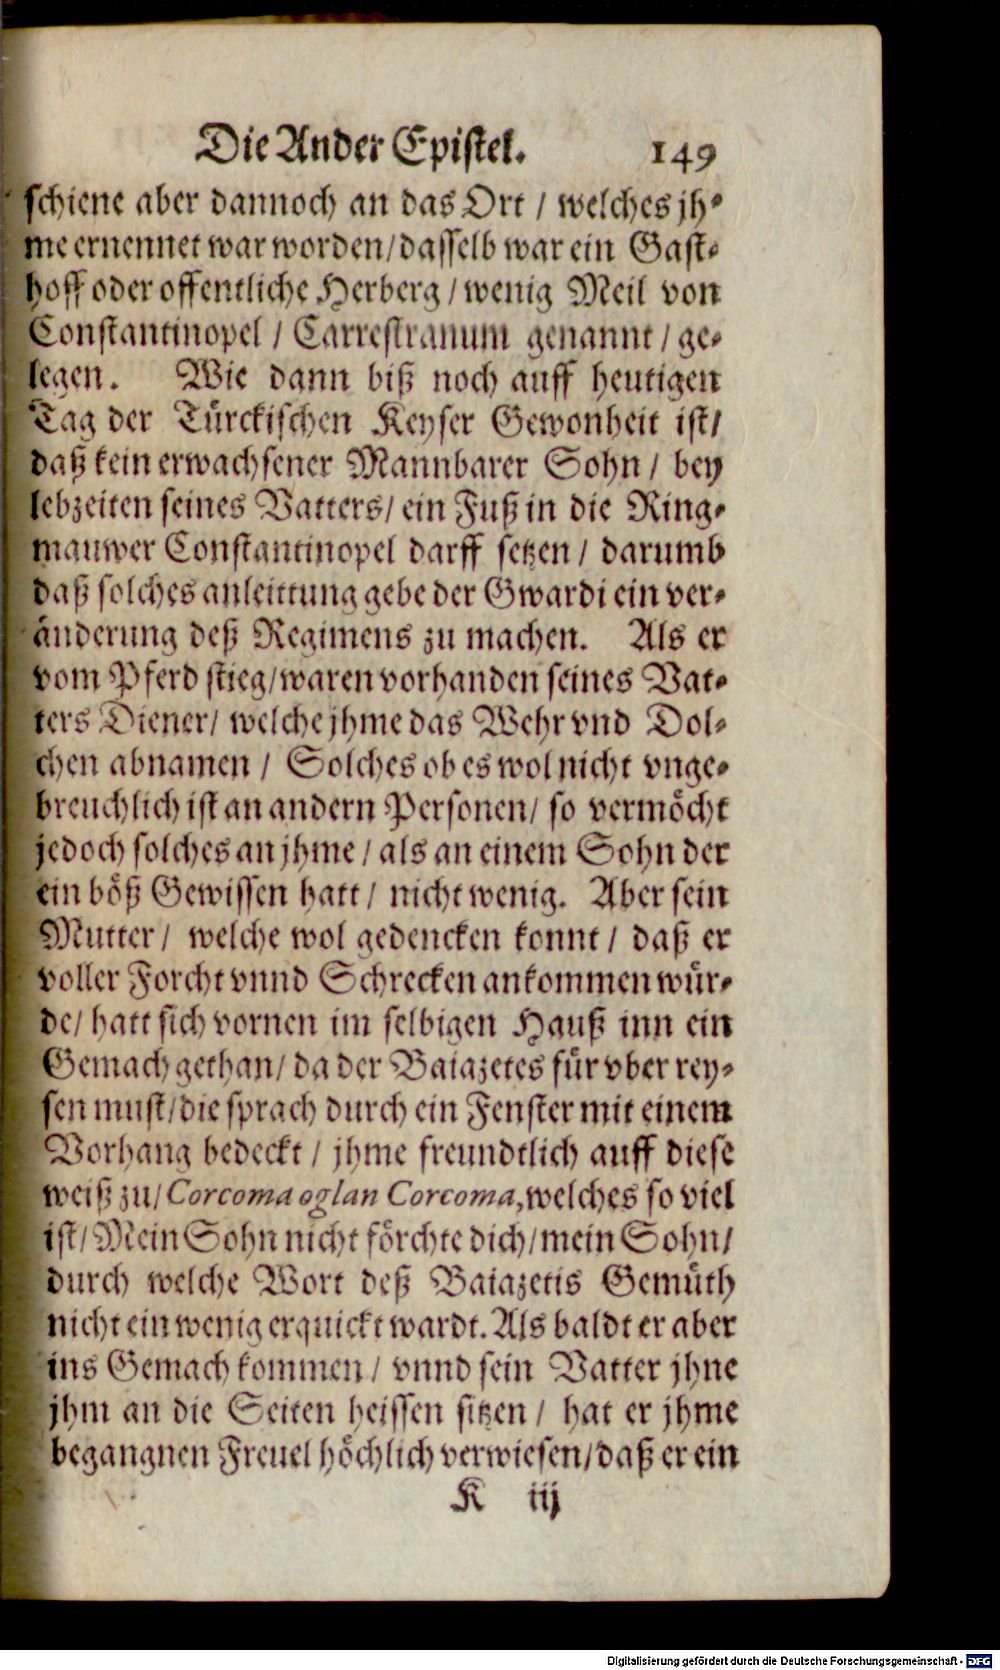 Die Ander Epistel. 149
schiene aber dannoch an das Ort / welches jh-
me ernennet war worden / dasselb war ein Gast-
hoff oder offentliche Herberg / wenig Meil von
Constantinopel / Carrestranum genannt / ge-
legen. Wie dann biß noch auff heutigen
Tag der Türckischen Keyser Gewonheit ist /
daß kein erwachsener Mannbarer Sohn / bey
lebzeiten seines Vatters / ein Fuß in die Ring-
mauwer Constantinopel darff setzen / darumb
daß solches anleittung gebe der Gwardi ein ver-
änderung deß Regimens zu machen. Als er
vom Pferd stieg / waren vorhanden seines Vat-
ters Diener / welche jhme das Wehr vnd Dol-
chen abnamen / Solches ob es wol nicht vnge-
breuchlich ist an andern Personen / so vermöcht
jedoch solches an jhme / als an einem Sohn der
ein böß Gewissen hatt / nicht wenig. Aber sein
Mutter / welche wol gedencken konnt / daß er
voller Forcht vnnd Schrecken ankommen wür-
de / hatt sich vornen im selbigen Hauß inn ein
Gemach gethan / da der Baiazetes für vber rey-
sen must / die sprach durch ein Fenster mit einem
Vorhang bedeckt / jhme freundtlich auff diese
weiß zu / Corcoma oglan Corcoma, welches so viel
ist / Mein Sohn nicht förchte dich / mein Sohn /
durch welche Wort deß Baiazetis Gemüth
nicht ein wenig erquickt wardt. Als baldt er aber
ins Gemach kommen / vnnd sein Vatter jhne
jhm an die Seiten heissen sitzen / hat er jhme
begangnen Freuel höchlich verwiesen / daß er ein
K iij
Digitalisierung gefördert durch die Deutsche Forschungsgemeinschaft - DFG